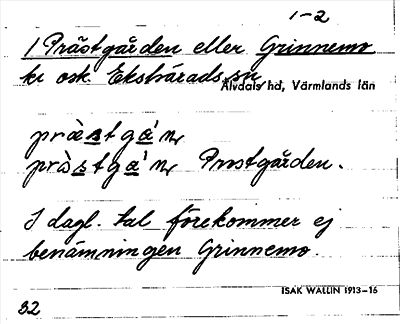 1-2
1 Prästgården eller Grinnemo
Ekshärads sn,
Älvdals hd, Värmlands län
præ̀stga̱'n
prὼstga̱'n Prostgården.
I dagl. tal förekommer ej
benämningen Grinnemo.
ISAK WALLIN 1913-16
32